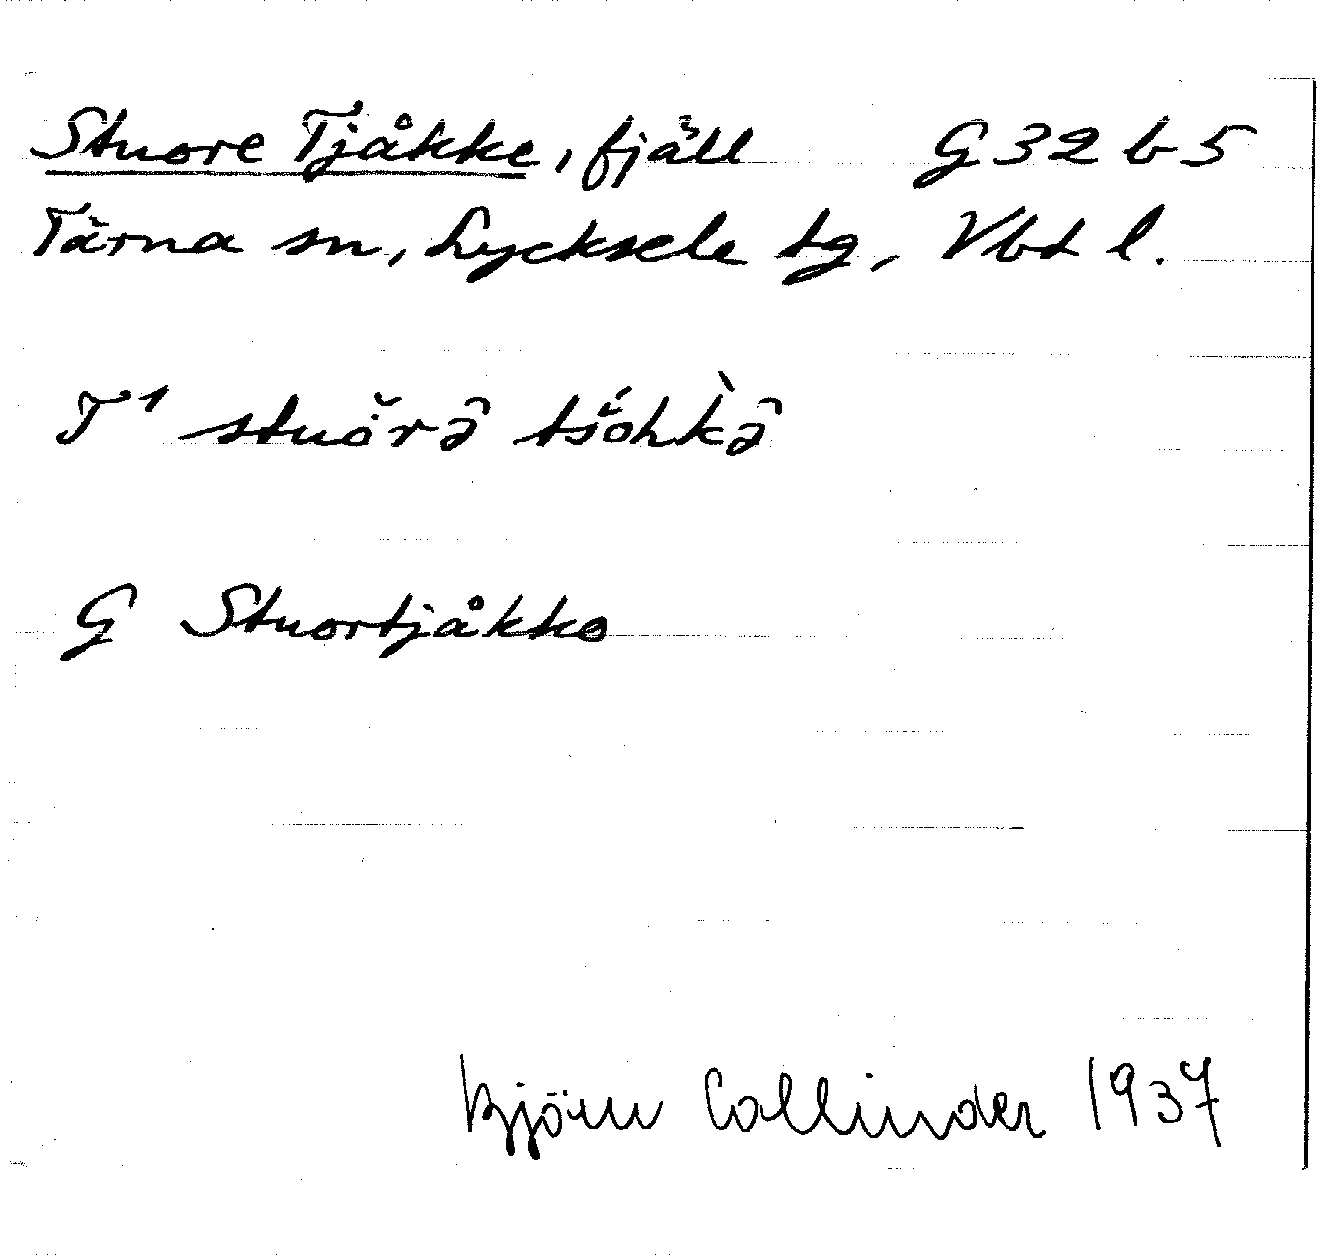 Stuore Tjåkke, fjäll G 32 b 5
Tärna sn, Lycksele tg, Vbt l.
T¹ stuŏrâ tśŏ́hk̀â
G Stuortjåkko
Björn Collinder 1937